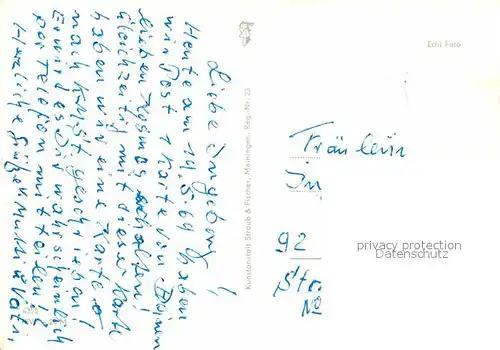 Liebe Ingeborg!
Heute am 14.5.69 haben
wir Post + Karte von Deinen
lieben erhalten!
Gleichzeitig mit dieser Karte
haben wir eine Karte
nach geschrieben!
Er wird es Dir wahrscheinlich
per Telefon mitteilen!
Herzliche Grüße! Mutti u Vati.
Kunstanstalt Straub & Fischer, Meiningen. Reg.-Nr. 23
Echt Foto
Fräulein
In
92
Str.
No
privacy protection
Datenschutz